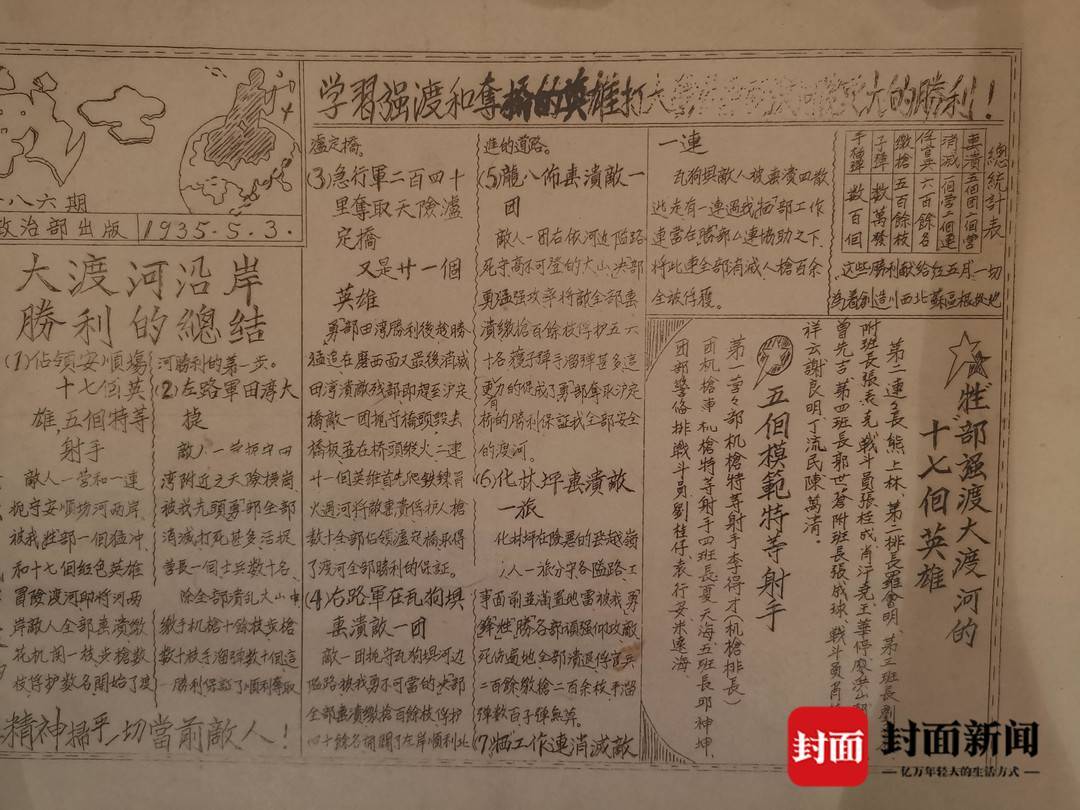 学習强渡和奪橋的英雄打
大的勝利！
八六期
政治部出版 1935.5.3.
大渡河沿岸
勝利的總结
(1)佔領安順場
十七個英
雄,五個特等
射手
敵人一營和一連
扼守安順場河两岸
被我牲部一個猛冲
和十七個紅色英雄
冒險渡河即將河两
岸敵人全部击潰繳
花机関一枝步槍数
枝俘护数名開始了渡
河勝利的第一步。
(2)左路軍田湾大
捷
敵人一
湾附近之天險
被我先頭勇部全部
消滅打死甚多活捉
營長一個士兵数十名,
除全部潰乱大山中
繳手机槍十餘枝步槍
数十枝手溜弹数十個這
一勝利保証了順利奪取
瀘定橋。
(3)急行軍二百四十
里奪取天險瀘
定橋
又是廿一個
英雄
勇部田湾勝利後趁勝
猛追在磨西面又最後消滅
田湾潰敵残部即趕至沪定
橋敵一团扼守橋頭毁去
橋板並在橋頭縱火二連
廿一個英雄首先爬鉄鍊冒
火過河將敵击潰俘护人槍
数十全部佔領瀘定橋取得
了渡河全部勝利的保証。
(4)右路軍在瓦狗垻
击潰敵一团
敵一团扼守瓦狗垻河边
隘路被我勇不可當的 部
全部击潰繳槍百餘枝俘护
四十餘名 開了左岸順利北
進的道路。
(5)龍八佈击潰敵一
团
敵人一团右依河边隘路
死守高不可登的大山 部
勇猛强攻卒將敵全部击
潰繳槍百餘枝俘护五六
十名 子弹手溜弹甚多這
更有力的促成了勇部奪取沪定
桥的勝利保証我全部安全
的渡河。
(6)化林坪击潰敵
一旅
化林坪在險恶的 越嶺
人一旅分守各隘路工
事面前並滿置地雷被我勇
牲勝各部頑强仰攻敵
死伤遍地全部潰退俘官兵
二百餘繳槍二百余枝手溜
弹数百子弹無算。
(7)牺工作連消滅敵
一連
瓦狗垻敵人被击潰四散
逃走有一連過我牺部工作
連當在勝部 連協助之下,
將此連全部消滅人槍百余
全被俘獲。
總統計表
击潰 五個团一個營
消滅 一個營二個連
俘官兵 六百餘名
繳槍 五百餘枝
子弹 数萬發
手榴弹 数百個
這些勝利献给紅五月一切
為着創造川西北蘇區根据地
“牲”部强渡大渡河的
十七個英雄
第二連連長熊上林,第二排長羅會明,第三班長劉
附班長張表克戰斗員張桂成肖汗尭王華停廖洪山
曾先吉第四班長郭世蒼附班長張成球,戰斗員肖
祥云謝良明丁流民陳萬清。
五個模範特等射手
第一営営部机槍特等射手李得才(机槍排長)
团机槍連机槍特等射手四班長夏天海五班長邱神坤,
团部警俻排戰斗員劉桂仔,袁行妥,米遠海,
精神掃平一切當前敵人！
封面
封面新闻
亿万年轻人的生活方式